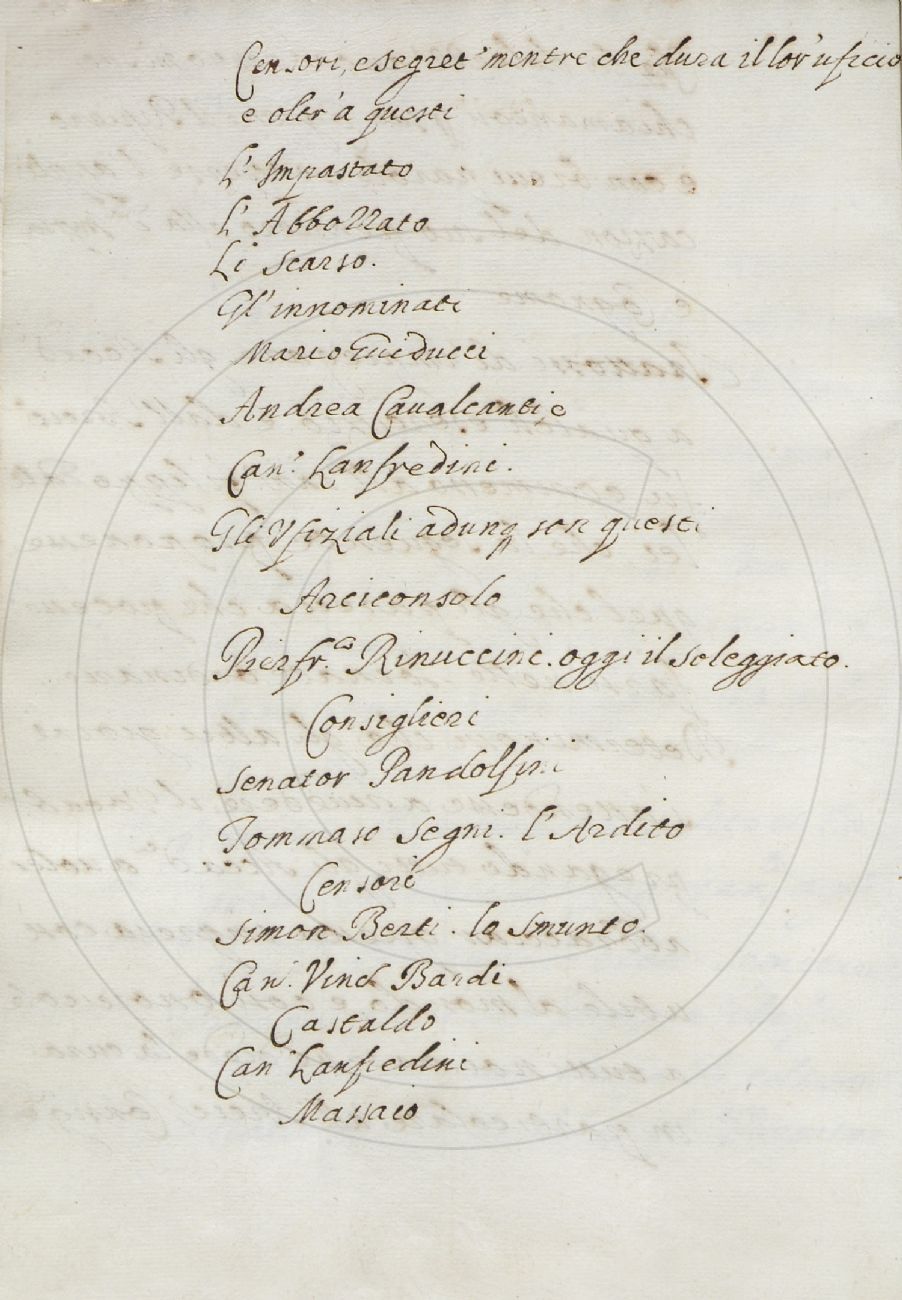 Censori, e segret.º mentre che dura il lor'uficio
e oltr'a questi
L'Impastato
L'Abbozzato
Lo Scarso.
Gl'innominati
Mario Guiducci
Andrea Cavalcanti, e
Can.º Lanfredini.
Gli Ufiziali adunq son questi
Arciconsolo
Pierfr.co Rinuccini. oggi il Soleggiato.
Consiglieri
Senator Pandolfini
Tommaso Segni. l'Ardito
Censori
Simon Berti. lo Smunto.
Can.º Vinc. Bardi.
Castaldo
Can.º Lanfredini
Massaio